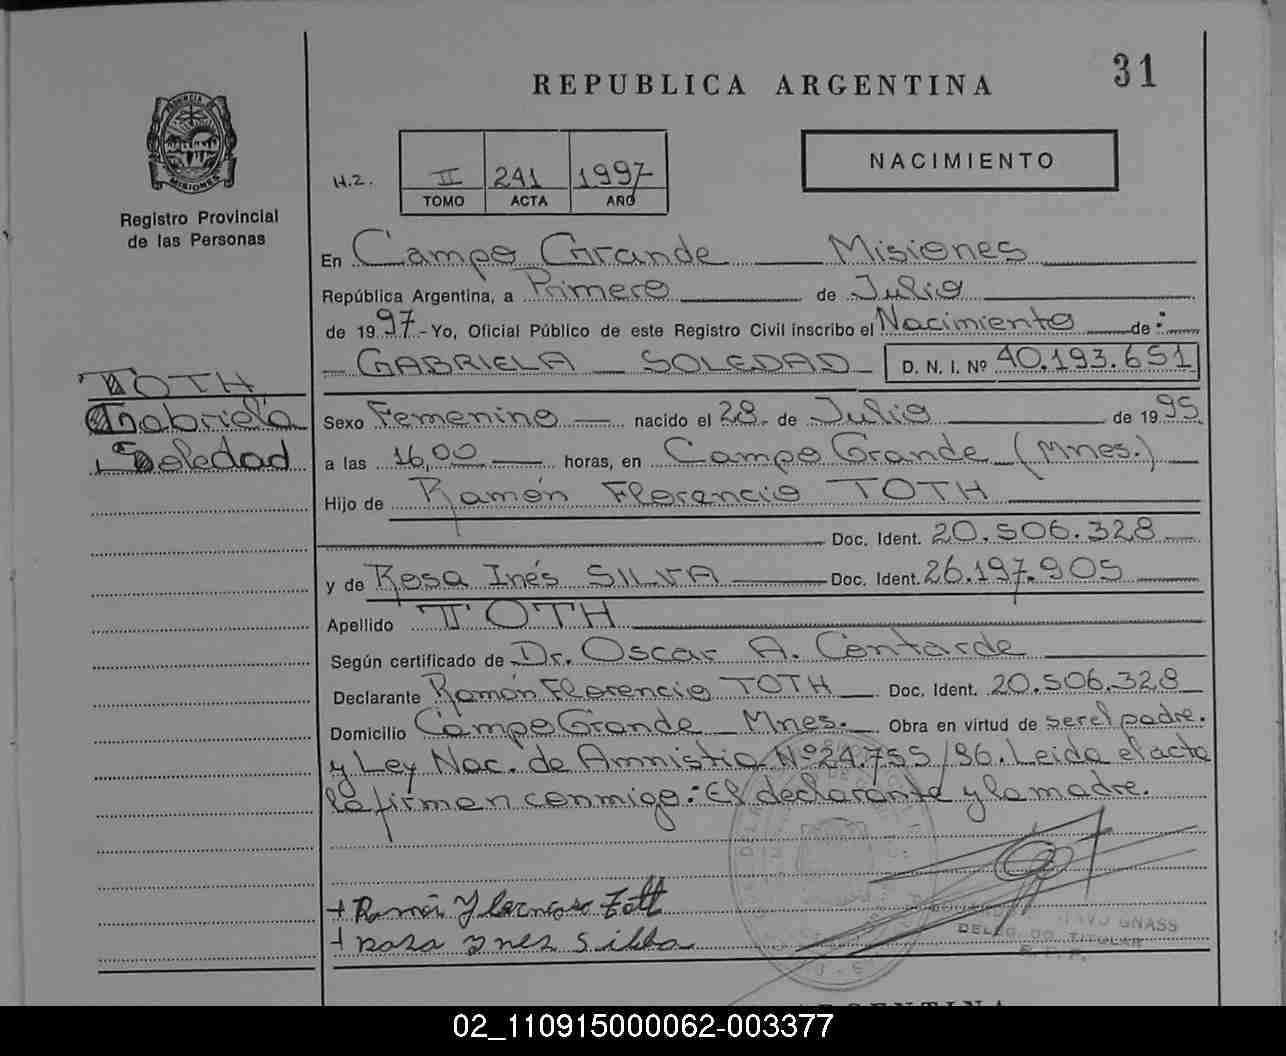 31
REPUBLICA ARGENTINA
NACIMIENTO
PROVINCIA DE
MISIONES
Registro Provincial
de las Personas
H.2. II 241 1997
TOMO ACTA AÑO
En Campo Grande Misiones
República Argentina, a Primero de Julio
de 1997 - Yo, Oficial Público de este Registro Civil inscribo el Nacimiento de:
GABRIELA SOLEDAD D. N. I. Nº 40.193.651
TOTH
Gabriela
Soledad
Sexo Femenino nacido el 28 de Julio de 1995
a las 16,00 horas, en Campo Grande (Mnes.)
Hijo de Ramón Florencio TOTH
Doc. Ident. 20.506.328
y de Rosa Inés SILVA Doc. Ident. 26.197.905
Apellido TOTH
Según certificado de Dr. Oscar A. Contarde
Declarante Ramón Florencio TOTH Doc. Ident. 20.506.328
Domicilio Campo Grande Mnes. Obra en virtud de ser el padre.
y Ley Nac. de Amnistia Nº 24.755/96. Leida el acta
la firman conmigo: El declarante y la madre.
+ Ramón Florencio Tott
+ rosa ynes Silba
GNASS
DELEG.DO TITULAR
R. P. P.
ARGENTINA
02_110915000062-003377